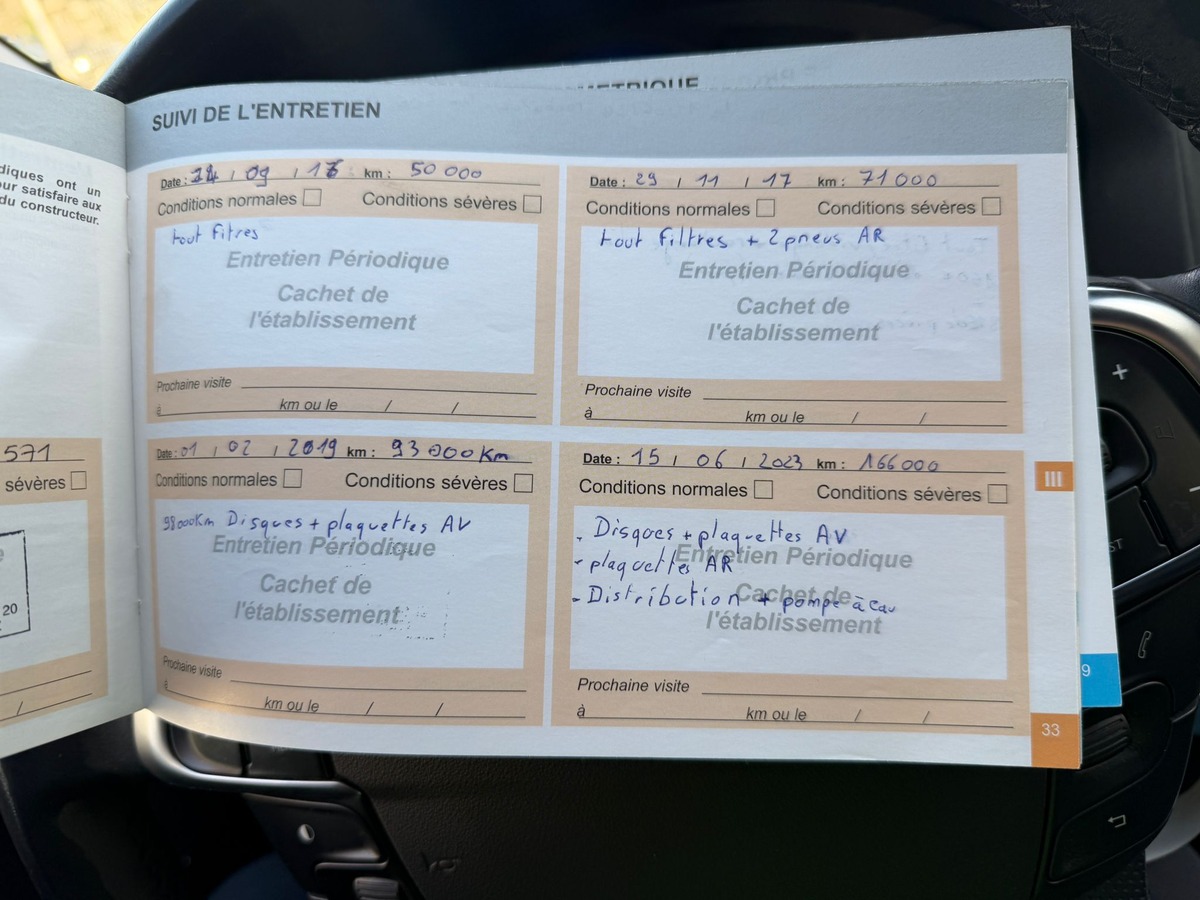 diques ont un
our satisfaire aux
du constructeur.
571
sévères
20
SUIVI DE L'ENTRETIEN
Date : / 09 / km : 50 000
Conditions normales Conditions sévères
tout fitres
Entretien Périodique
Cachet de
l'établissement
Prochaine visite
à km ou le / /
Date : 29 / 11 / 17 km : 71000
Conditions normales Conditions sévères
tout filtres + 2 pneus AR
Entretien Périodique
Cachet de
l'établissement
Prochaine visite
à km ou le / /
Date : 01 / 02 / 2019 km : 93 000 Km
Conditions normales Conditions sévères
98000Km Disques + plaquettes AV
Entretien Périodique
Cachet de
l'établissement
Prochaine visite
à km ou le / /
Date : 15 / 06 / 2023 km : 166000
Conditions normales Conditions sévères
- Disques + plaquettes AV
- plaquettes AR
- Distribution + pompe à eau
Entretien Périodique
Cachet de
l'établissement
Prochaine visite
à km ou le / /
III
9
33